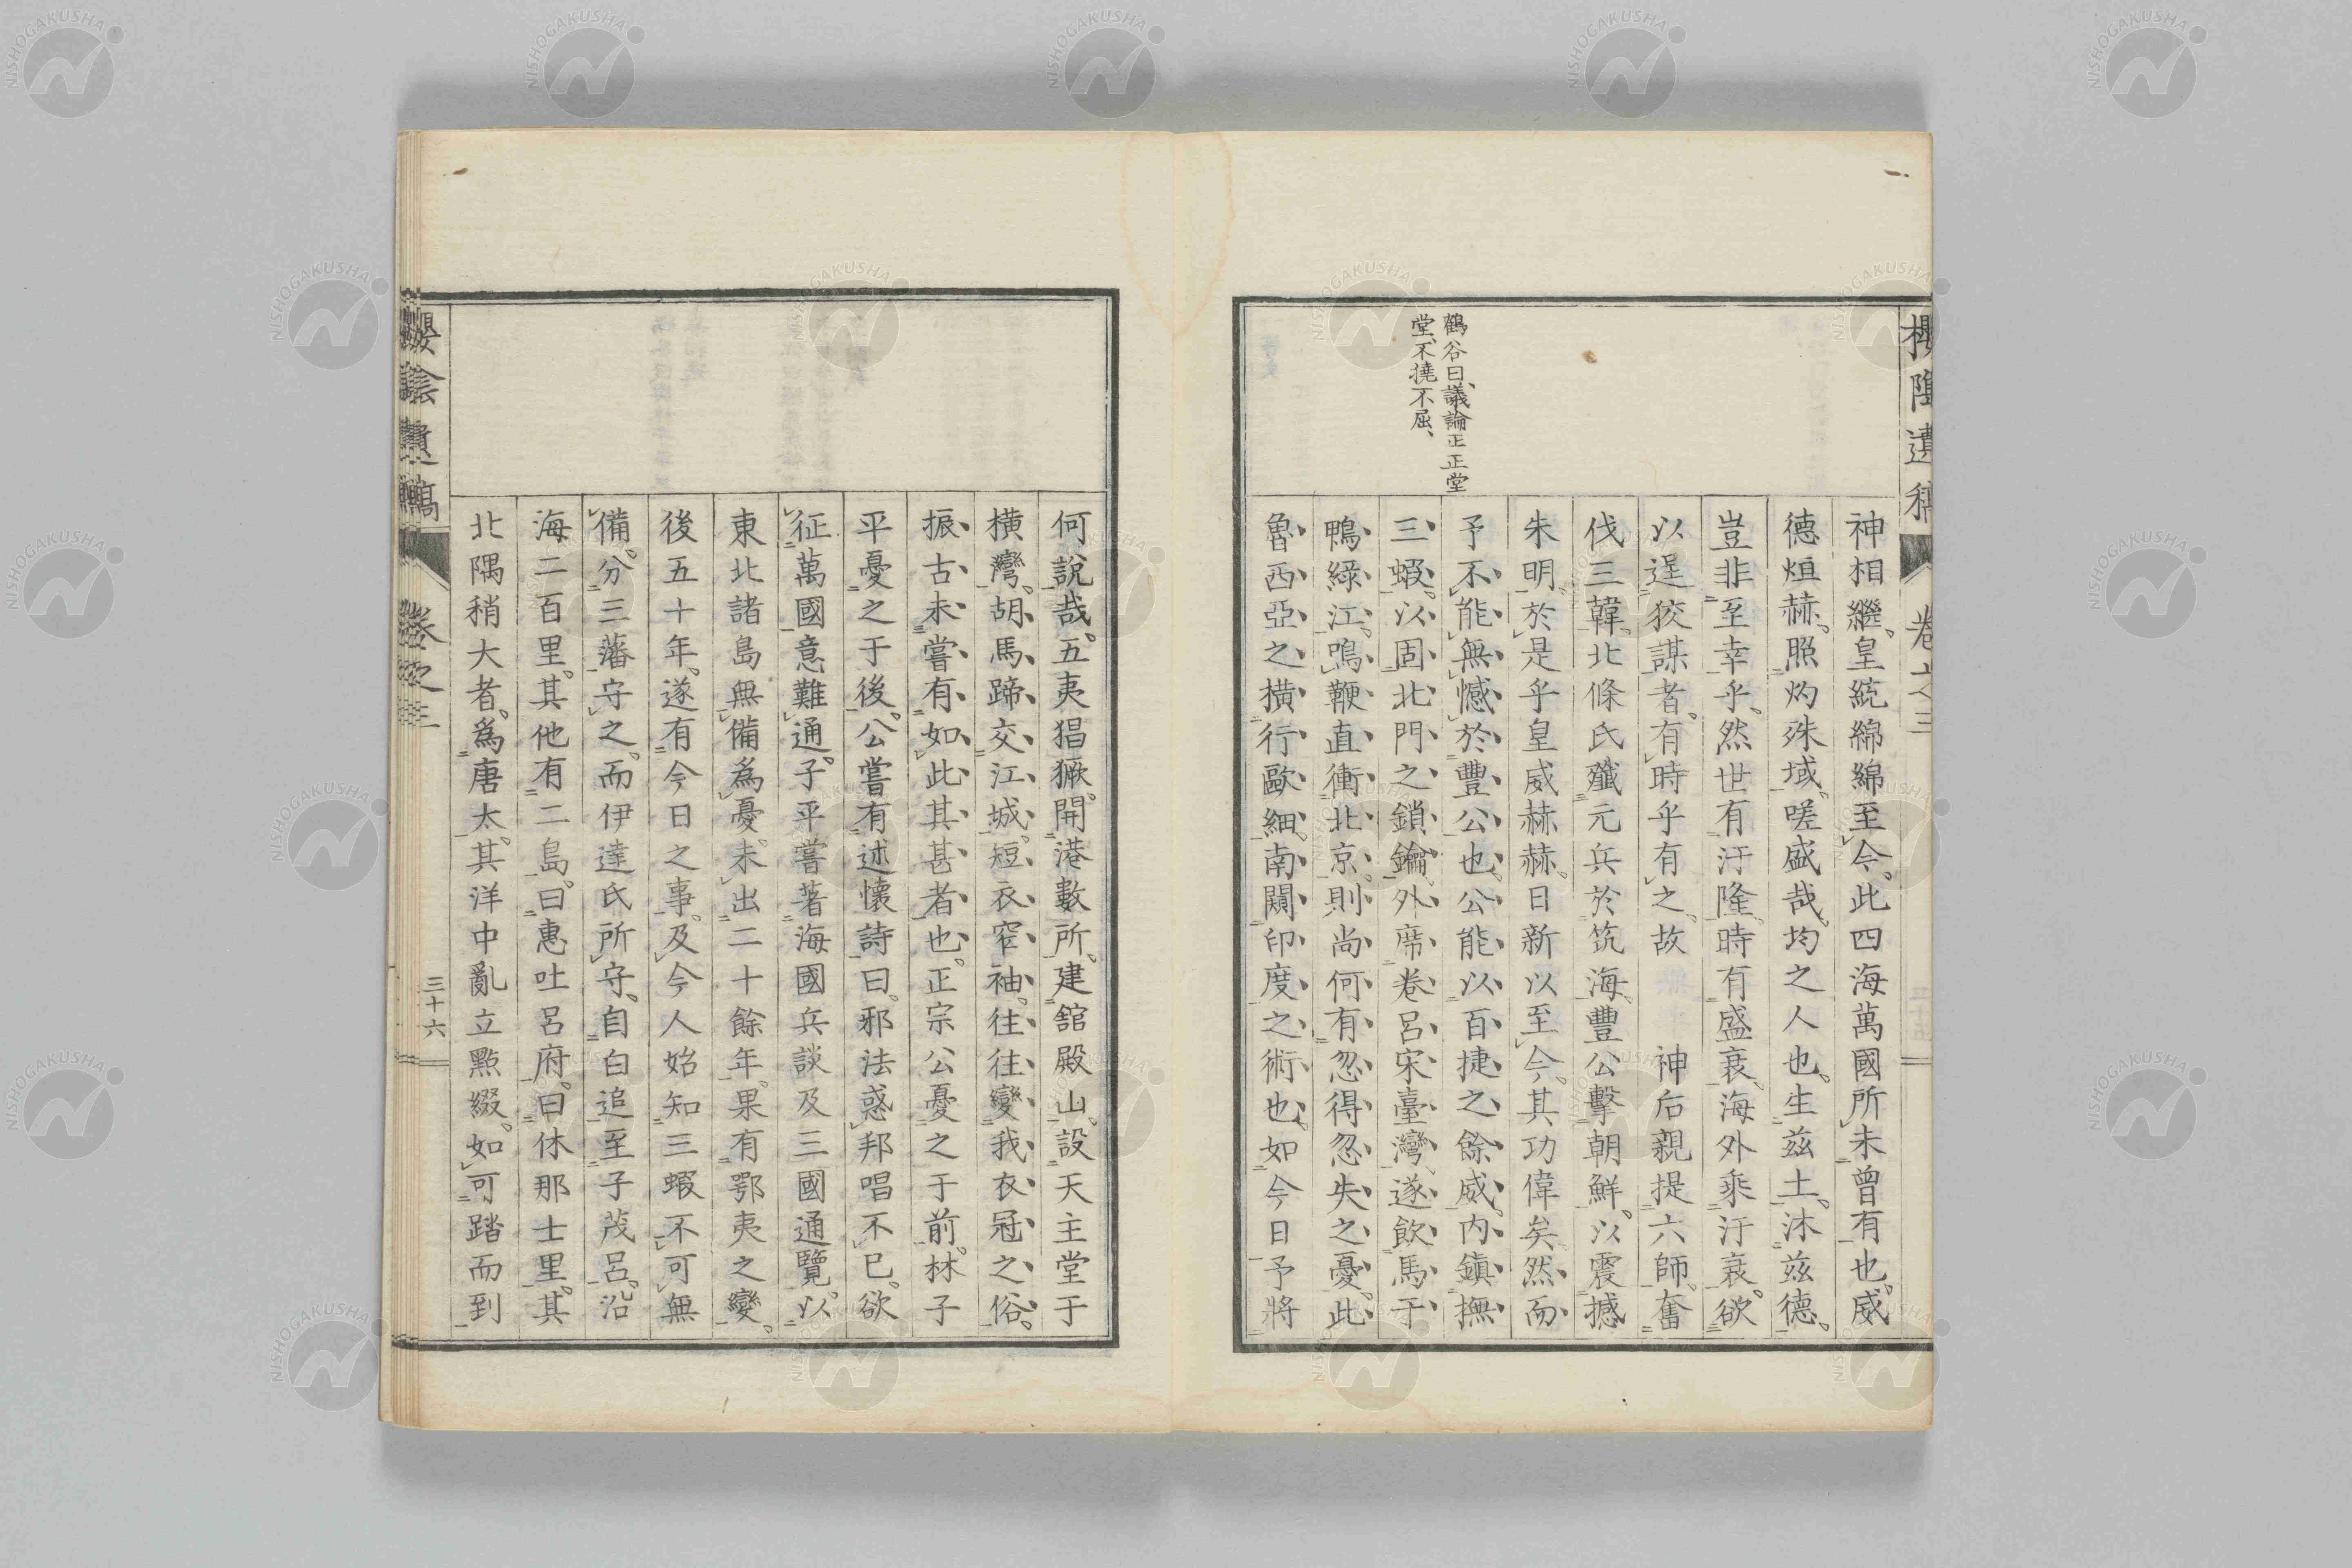 櫻陰遺稿 卷之三
鶴谷曰、議論正正堂
堂、不撓不屈、
神相繼。皇統綿綿至今。此四海萬國所未曾有也。威
德烜赫。照灼殊域。嗟盛哉。均之人也。生茲土。沐茲德。
豈非至幸乎。然世有汙隆。時有盛衰。海外乘汙衰。欲
以逞狡謀者。有時乎有之。故 神后親提六師。奮
伐三韓。北條氏殲元兵於筑海。豐公擊朝鮮。以震撼
朱明。於是乎皇威赫赫。日新以至今。其功偉矣。然而
予不能無憾於豐公也。公能以百捷之餘威。內鎮撫
三蝦。以固北門之鎖鑰。外席卷呂宋臺灣。遂飲馬于
鴨綠江。鳴鞭直衝北京。則尚何有忽得忽失之憂。此
魯西亞之橫行歐細。南闢印度之術也。如今日予將
何說哉。五夷猖獗。開港數所。建舘殿山。設天主堂于
橫灣。胡馬蹄交江城。短衣窄袖。往往變我衣冠之俗。
振古未嘗有如此其甚者也。正宗公憂之于前。林子
平憂之于後。公嘗有述懷詩曰。邪法惑邦唱不已。欲
征萬國意難通。子平嘗著海國兵談及三國通覽。以
東北諸島無備爲憂。未出二十餘年。果有鄂夷之變。
後五十年。遂有今日之事。及今人始知三蝦不可無
備。分三藩守之。而伊達氏所守。自白追至子茂呂。沿
海二百里。其他有二島。曰惠吐呂府。曰休那士里。其
北隅稍大者。爲唐太。其洋中亂立點綴。如可踏而到
櫻陰遺稿 卷之三 三十六
NISHOGAKUSHA